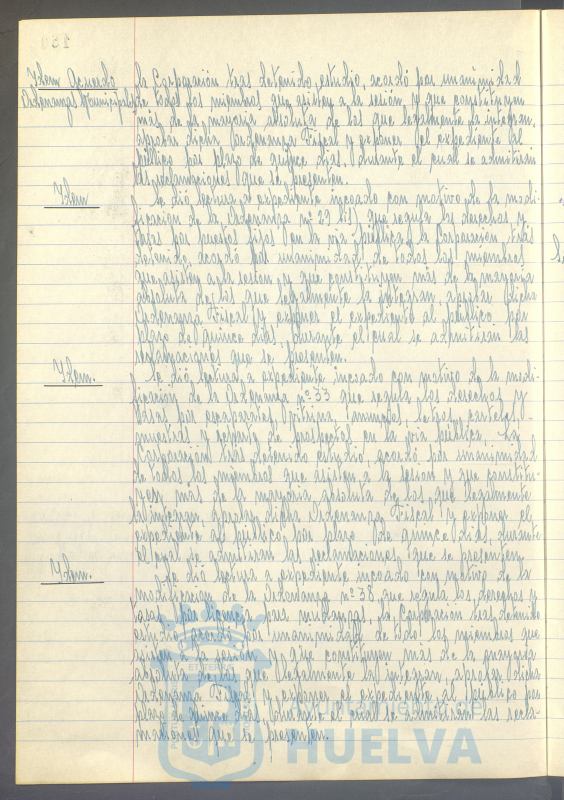 Idem Acuerdo
Ordenanza Municipal
la Corporación tras detenido estudio, acordó por unanimidad
de todos los miembros que asisten a la sesión, y que constituyen
más de la mayoría absoluta de los que legalmente la integran,
aprobar dicha Ordenanza Fiscal y exponer el expediente al
público por plazo de quince días, durante el cual se admitirán
las reclamaciones que se presenten.
Idem
Se dió lectura a expediente incoado con motivo de la modi-
ficación de la Ordenanza nº 29 que regula los derechos y
tasas por puestos fijos en la vía pública, la Corporación, tras
detenido, acordó por unanimidad de todos los miembros
que asisten a la sesión y que constituyen más de la mayoría
absoluta de los que legalmente la integran, aprobar dicha
Ordenanza Fiscal y exponer el expediente al público por
plazo de quince días, durante el cual se admitirán las
reclamaciones que se presenten.
Idem.
Se dió lectura a expediente incoado con motivo de la modi-
ficación de la Ordenanza nº 33 que regula los derechos y
tasas por escaparates, vitrinas, letreros, carteles y
muestras y reparto de prospectos en la vía pública, la
Corporación tras detenido estudio, acordó por unanimidad
de todos los miembros que asisten a la sesión y que constitu-
yen más de la mayoría absoluta de los que legalmente
la integran, aprobar dicha Ordenanza Fiscal y exponer el
expediente al público por plazo de quince días, durante
el cual se admitirán las reclamaciones que se presenten.
Idem.
Se dió lectura a expediente incoado con motivo de la
modificación de la Ordenanza nº 38 que regula los derechos y
tasas por licencias para, la Corporación tras detenido
estudio acordó por unanimidad de todos los miembros que
asisten a la sesión y que constituyen más de la mayoría
absoluta de los que legalmente la integran, aprobar dicha
Ordenanza Fiscal y exponer el expediente al público por
plazo de quince días, durante el cual se admitirán las recla-
maciones que se presenten.
Ayuntamiento de
HUELVA